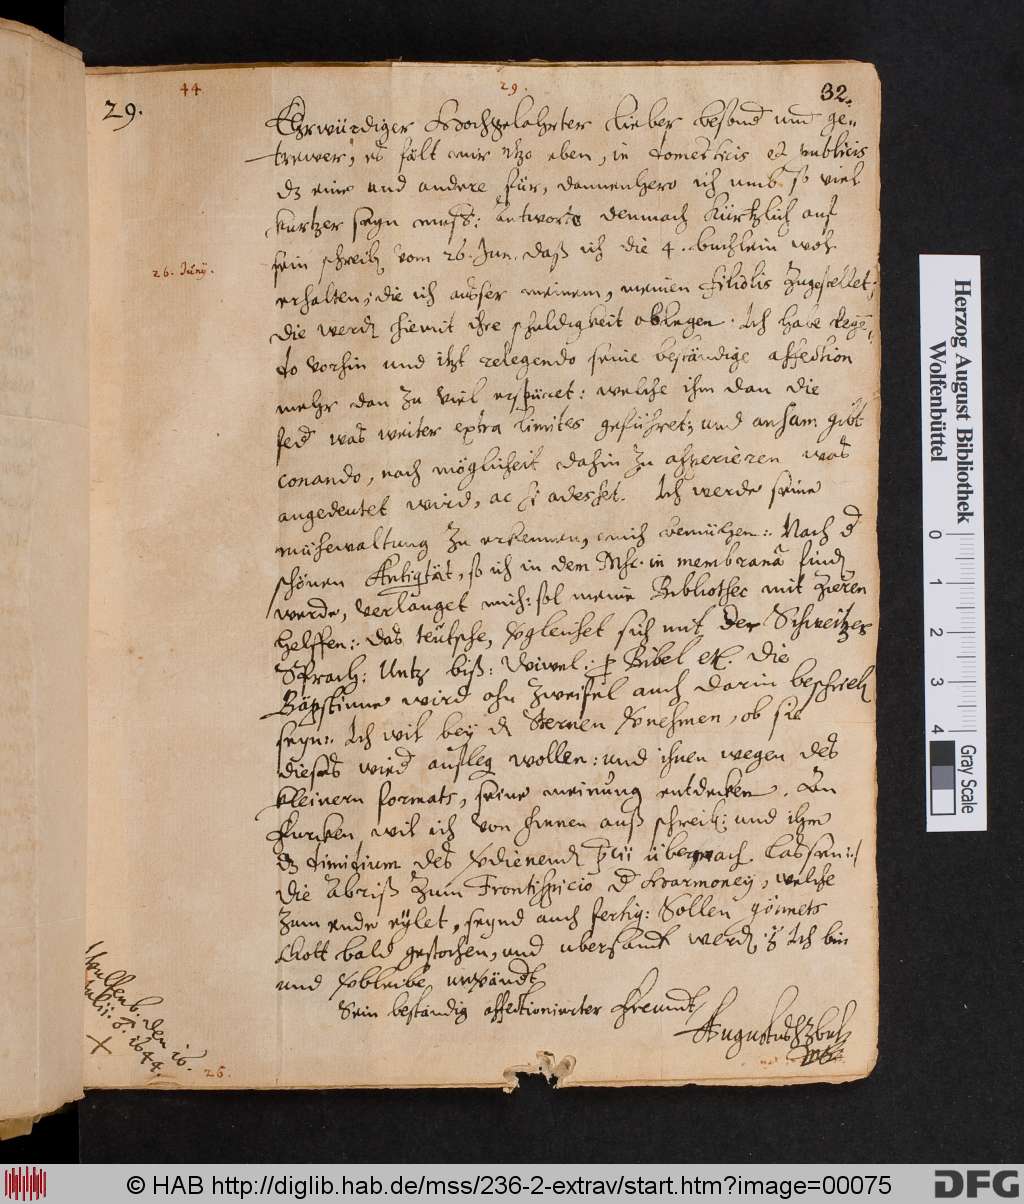 44
29.
29.
32.
Ehrwürdiger Hochgelahrter Lieber besond und ge„
trewer, es fält mir itzo eben, in domesticis et publicis
dz eine und andere für, dannenhero ich umb so viel
kurtzer seyn muss: Antworte demnach kürtzlich auf
sein schreib vom 26. Jun. daß ich die 4. buchlein wol
26. Junij.
erhalten; die ich ausser meinem, meinen filiolis zugestellet;
die werd hiemit ihre schuldigkeit ablegen. Ich habe
vorhin und itzt relegendo seine beständige affection
mehr dan zu viel erspüret: welche ihm dan die
fed was weiter extra limites geführet; und
conando, nach möglicheit dahin zu asperieren was
angedeutet wird, ac si adesset. Ich werde seine
mühewaltung zu erkennen, mich bemühen: Nach d
schönen Antiqtät, so ich in dem Msc. in membranâ find
werde, verlanget mich: sol meine Bibliothec mit zieren
helffen: das teutsche, vgleichet sich mit der Schweitzer
Sprach: Untz biß: Wiwel: Bibel etc. Die
Bäpstinne wird ohn zweifel auch darin beschrieb
seyn: Ich wil bey d Sternen vnehmen, ob sie
dieses wied aufleg wollen: und ihnen wegen des
kleinern formats, seine meinung entdecken. An
Furcken wil ich von hinnen auß schreib: und ihm
dz dimidium des vdienend übermach lassen:
die Abriß zum Frontispicio d Harmoney, welche
zum ende eylet, seynd auch fertig: Sollen gönnets
Gott bald gestochen, und ubersandt werd: Ich bin
und vbleibe
Sein beständig affectionierter Freundt
Augustus HzBuL
Wulffenb. den 16.
Julij: 1644.
26.
Herzog August Bibliothek
Wolfenbüttel
0 1 2 3 4
Gray Scale
© HAB http://diglib.hab.de/mss/236-2-extrav/start.htm?image=00075
DFG